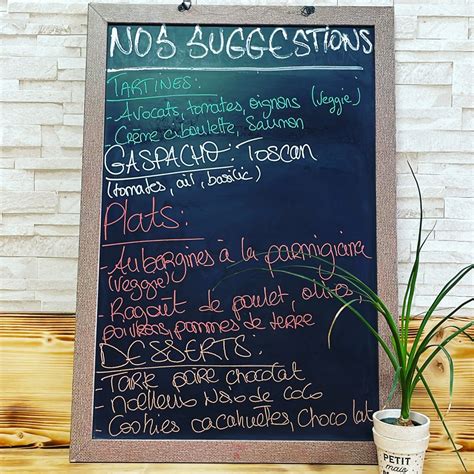 NOS SUGGESTIONS
TARTINES:
- Avocats, tomates, oignons (veggie)
- Crème ciboulette, saumon
GASPACHO: Toscan
(tomates, ail, basilic)
Plats:
- Aubergines à la parmigiana
(veggie)
- Ragoût de poulet, olives,
poivrons, pommes de terre
DESSERTS:
- Tarte poire chocolat
- moelleux noix de coco
- Cookies cacahuètes, chocolat
PETIT
mais